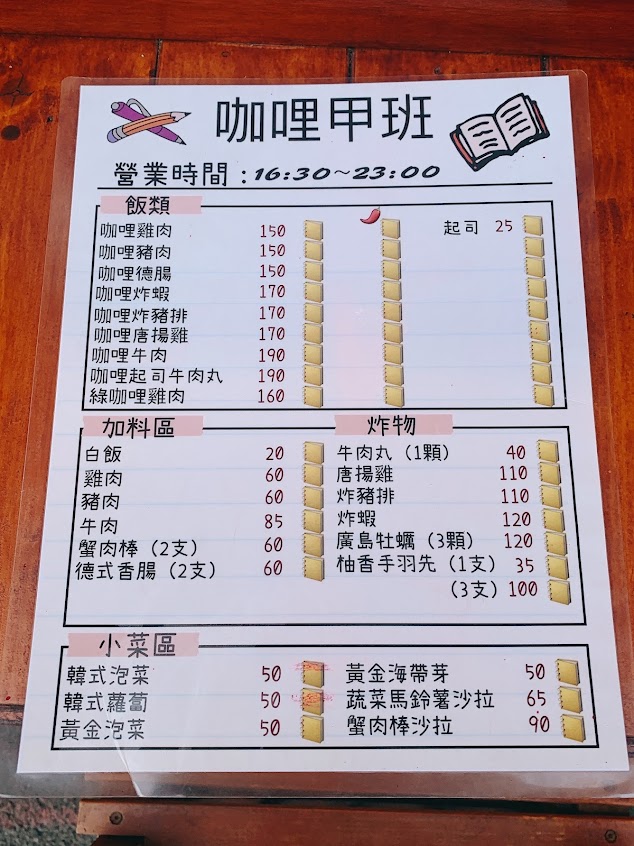 咖哩甲班
營業時間：16:30~23:00
飯類
咖哩雞肉 150 起司 25
咖哩豬肉 150
咖哩德腸 150
咖哩炸蝦 170
咖哩炸豬排 170
咖哩唐揚雞 170
咖哩牛肉 190
咖哩起司牛肉丸 190
綠咖哩雞肉 160
加料區
白飯 20
雞肉 60
豬肉 60
牛肉 85
蟹肉棒（2支） 60
德式香腸（2支） 60
炸物
牛肉丸（1顆） 40
唐揚雞 110
炸豬排 110
炸蝦 120
廣島牡蠣（3顆） 120
柚香手羽先（1支） 35
（3支）100
小菜區
韓式泡菜 50
韓式蘿蔔 50
黃金泡菜 50
黃金海帶芽 50
蔬菜馬鈴薯沙拉 65
蟹肉棒沙拉 90